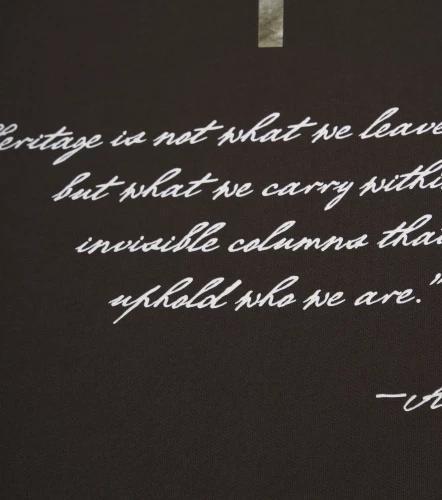 eritage is not what we leave
but what we carry withi
invisible columns that
uphold who we are."
—A